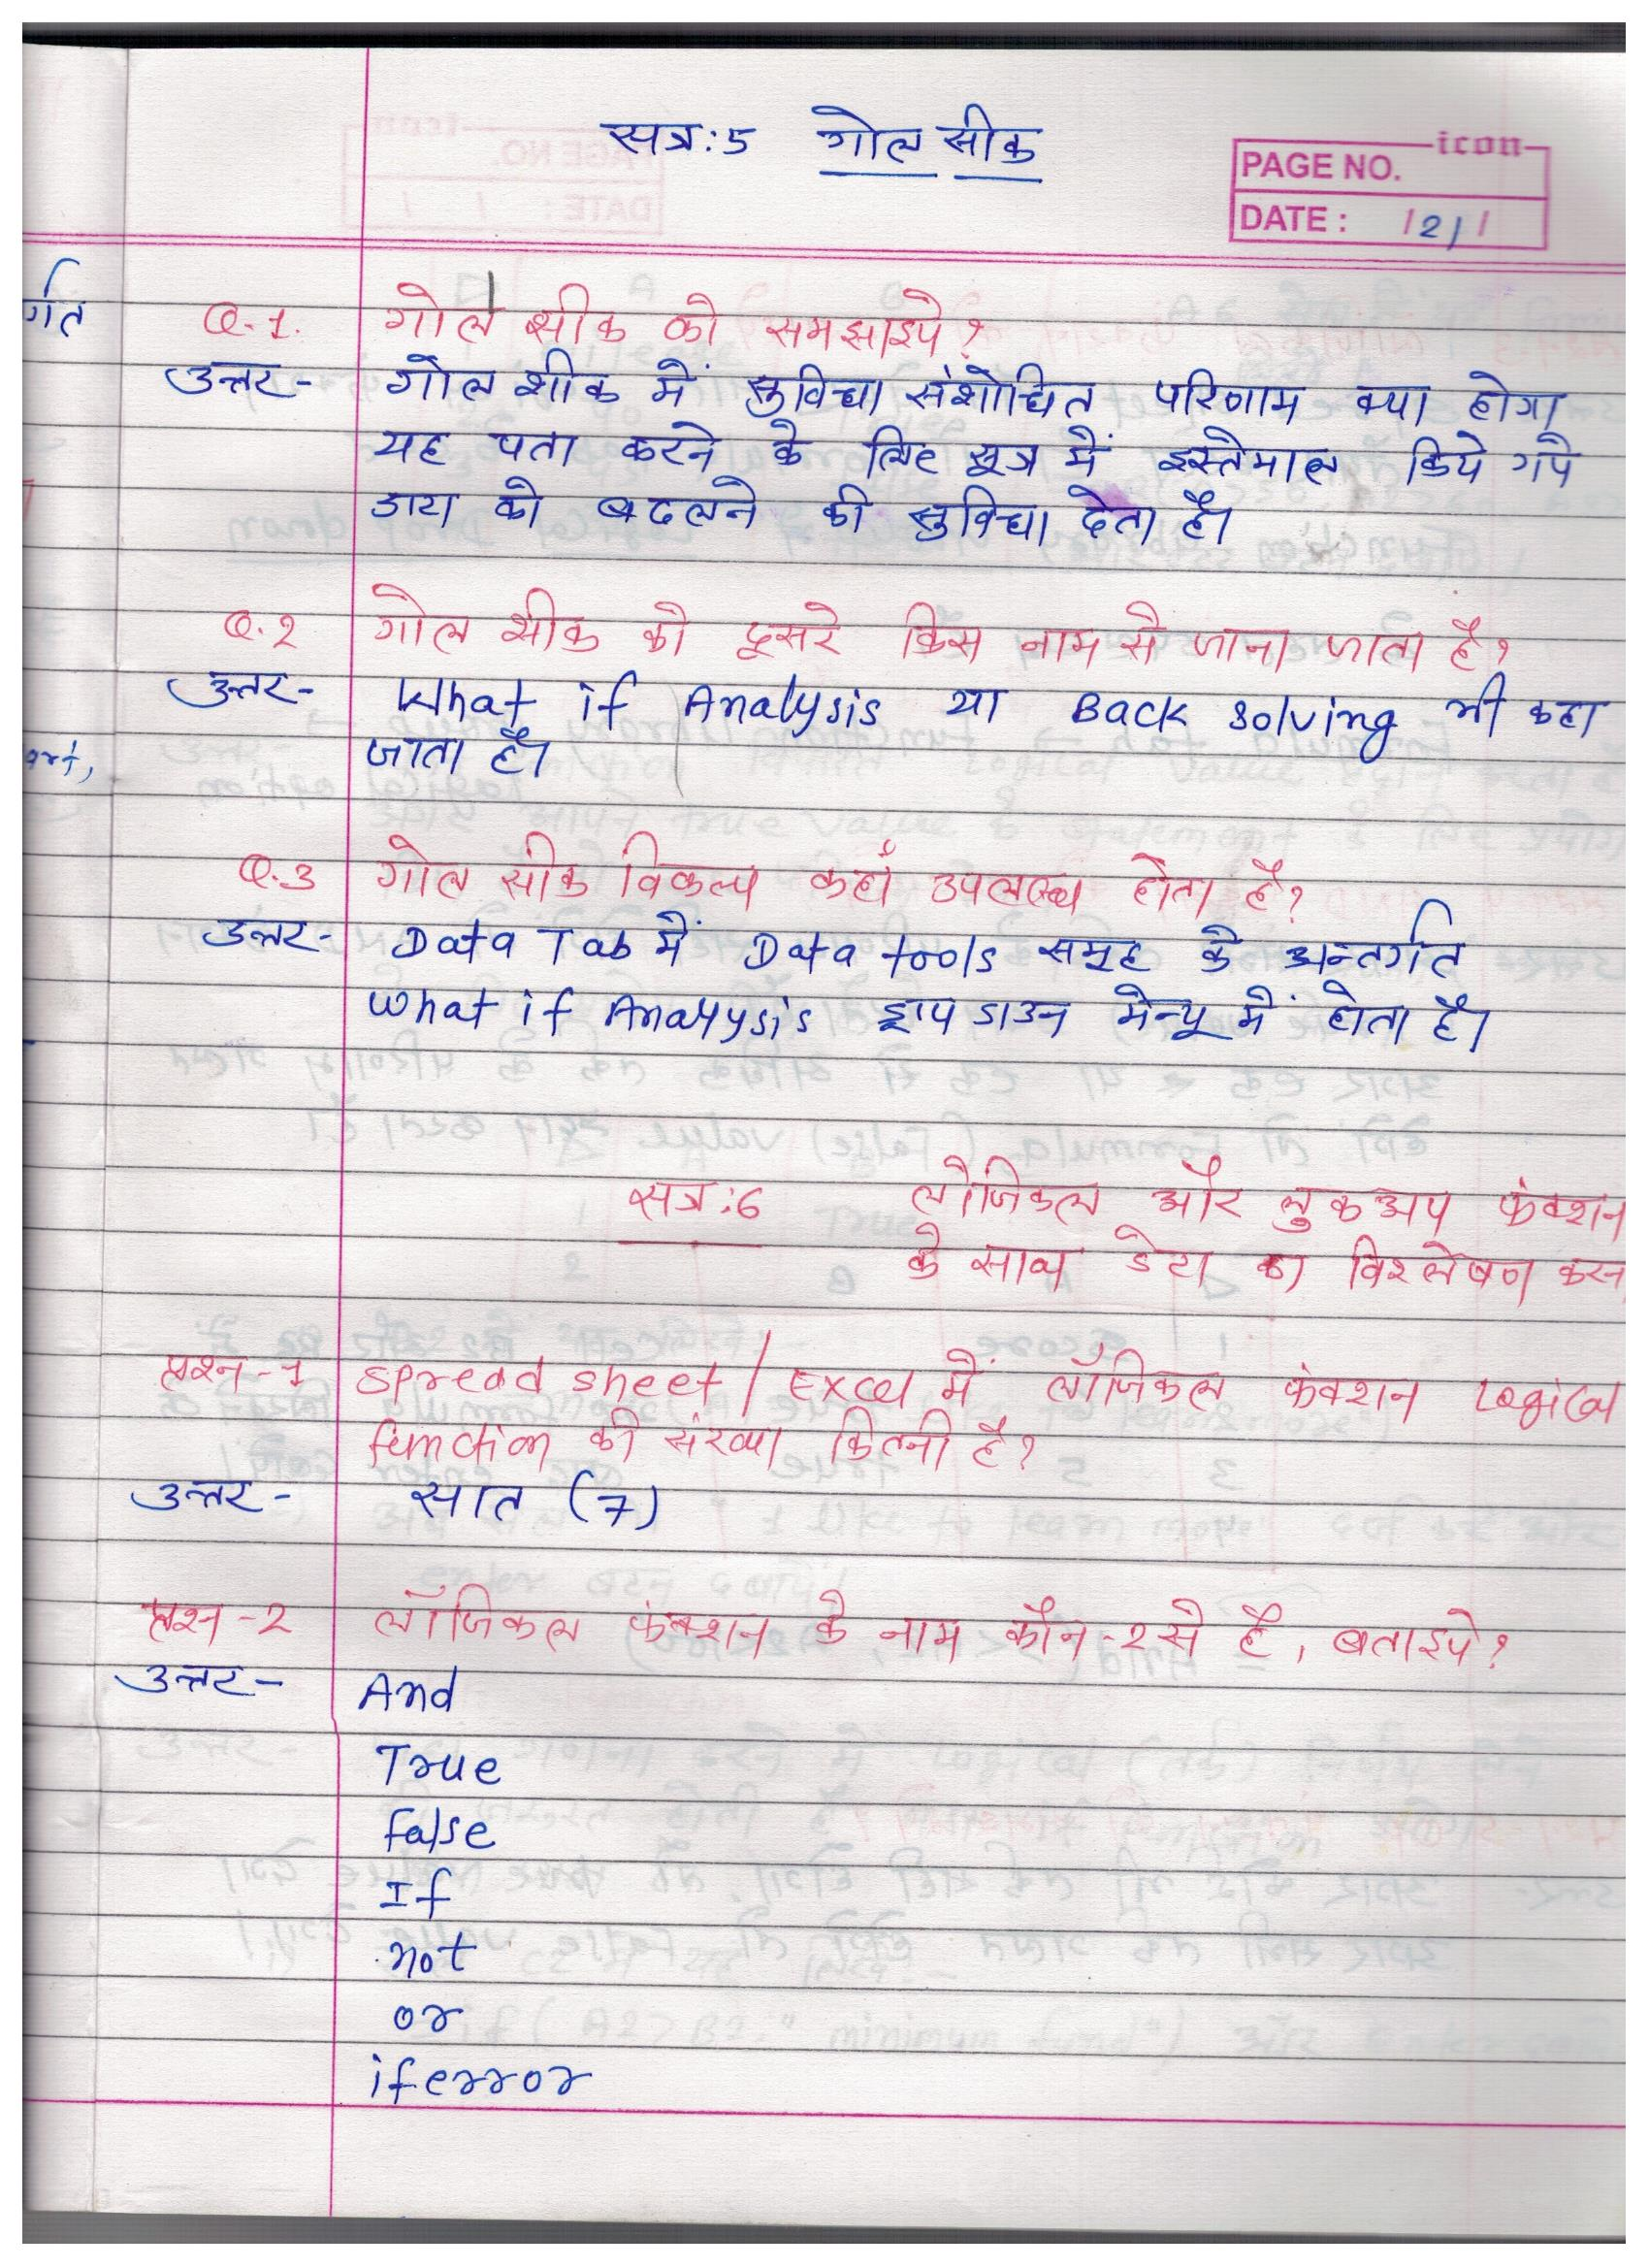 सत्र:5 गोल सीक
icon
PAGE NO.
DATE: /2/ /
र्गत
Q.1. गोल सीक को समझाइये?
उत्तर- गोल शीक में सुविधा संशोधित परिणाम क्या होगा
यह पता करने के लिए सूत्र में इस्तेमाल किये गये
डाटा को बदलने की सुविधा देता है।
Q.2 गोल सीक को दूसरे किस नाम से जाना जाता है?
उत्तर- What if Analysis या Back solving भी कहा
जाता है।
art,
Q.3 गोल सीक विकल्प कहाँ उपलब्ध होता है?
उत्तर- Data Tab में Data tools समूह के अन्तर्गत
what if Analysis ड्राप डाउन मेन्यू में होता है।
सत्र:6 लॉजिकल और लुकअप फंक्शन
के साथ डेटा का विश्लेषण करन
प्रश्न-1 spread sheet / Excel में लॉजिकल फंक्शन Logical
function की संख्या कितनी है?
उत्तर- सात (7)
प्रश्न-2 लॉजिकल फंक्शन के नाम कौन-2 से है, बताइये?
उत्तर- And
True
false
If
not
or
iferror